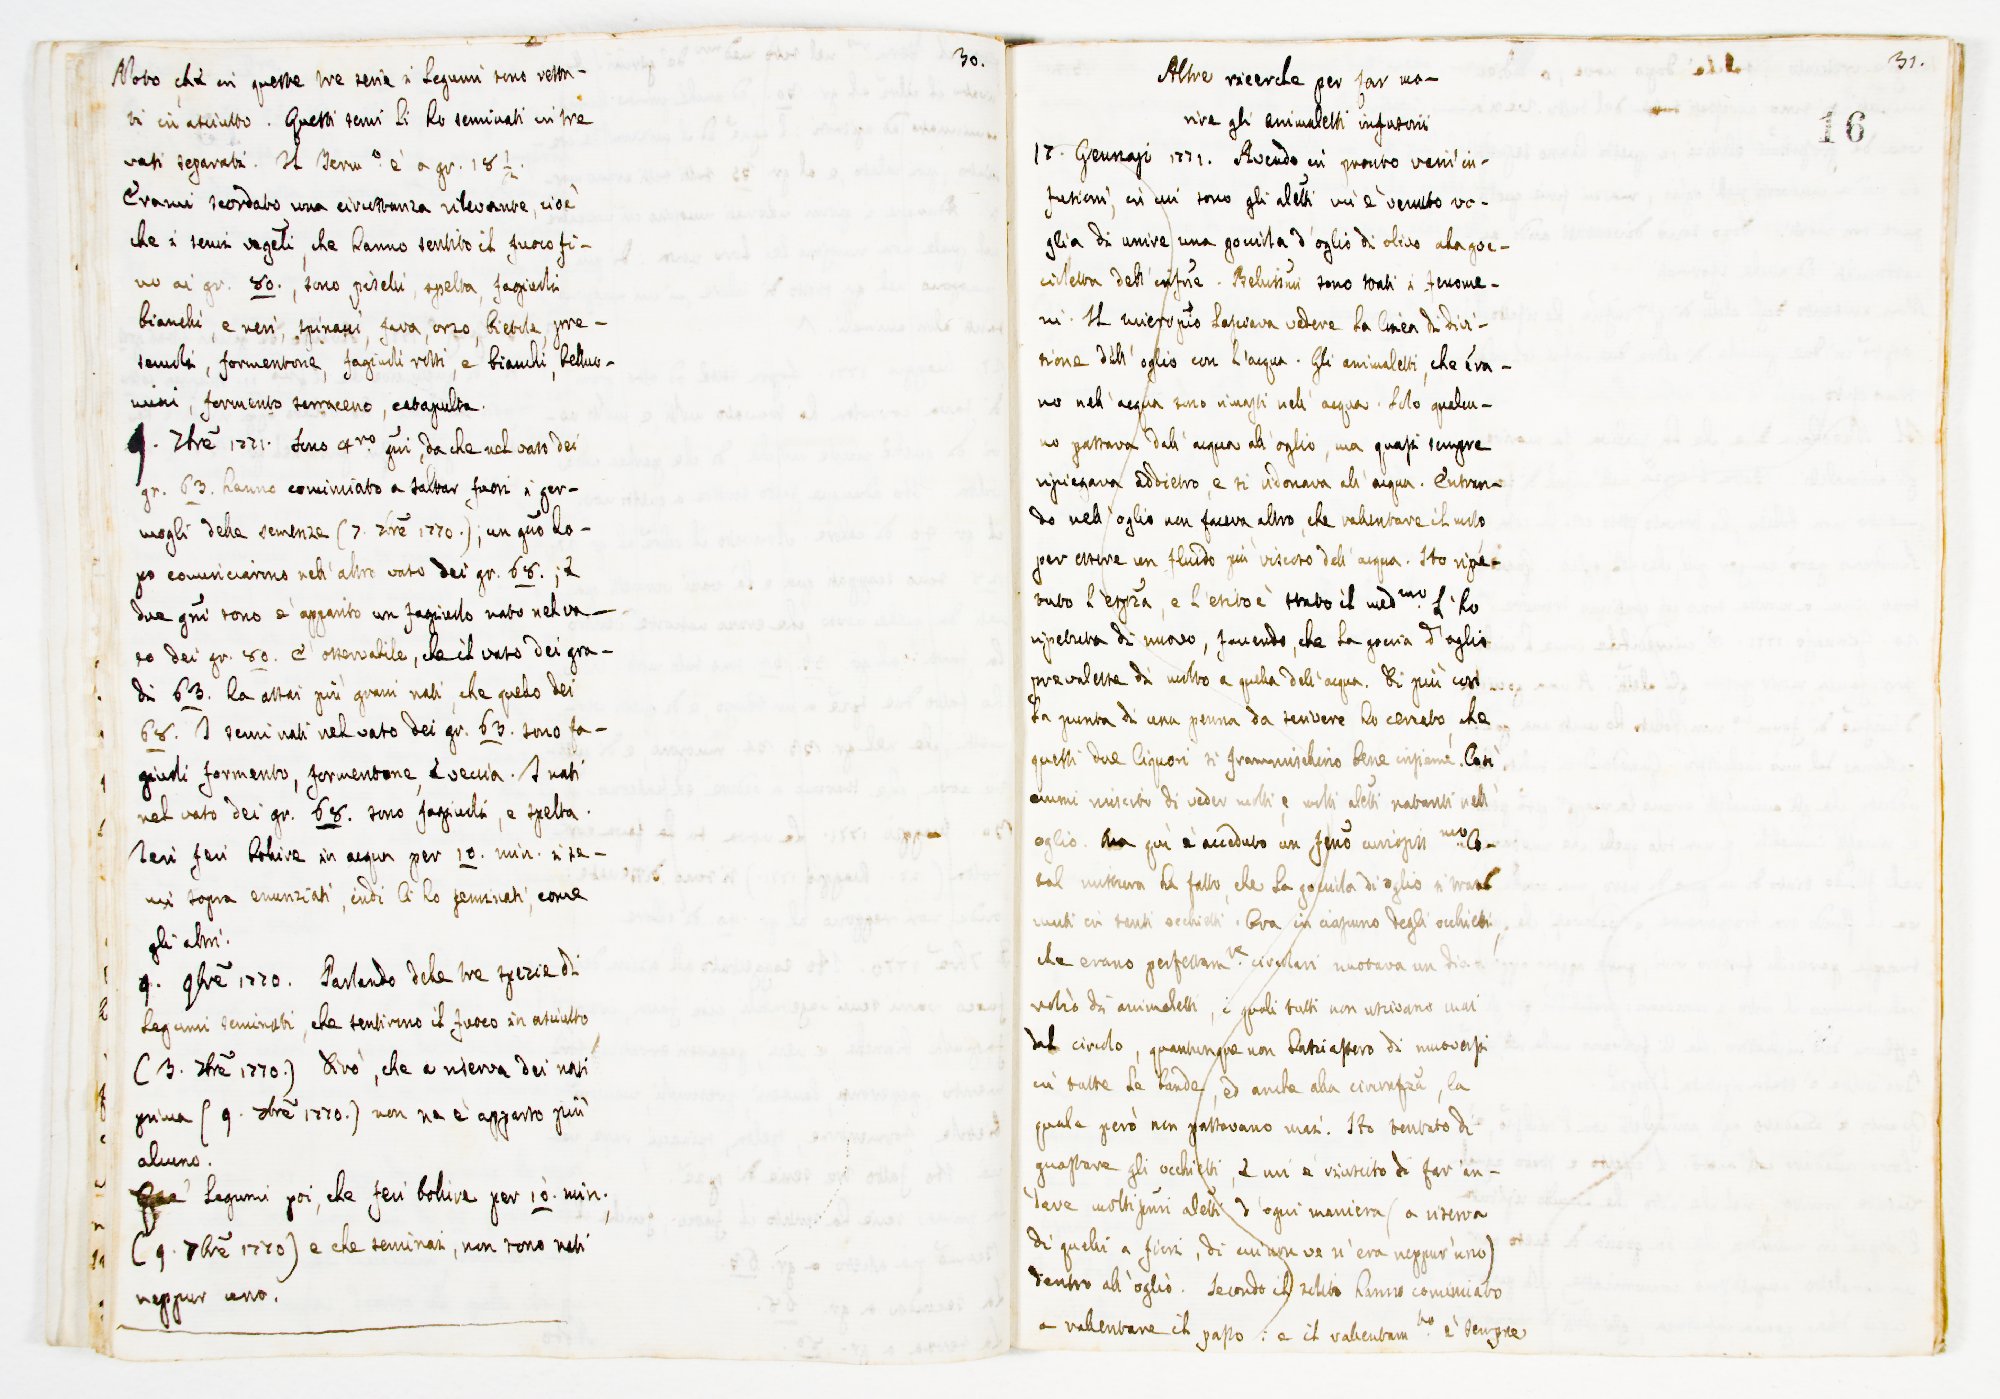 30.
Noto che in queste tre serie i Legumi sono resta-
ti in asciutto. Questi semi li ho seminati in tre
vasi separati. Il Term.º è a gr. 18 1/2.
Erami scordato una circostanza rilevante, cioè
che i semi vegeti, che hanno sentito il fuoco fi-
no ai gr. 80., sono piselli, spelta, fagiuoli
bianchi, e neri, spinazzi, fava, orzo, bietola, pre-
semoli, formentone, fagiuoli rossi, e bianchi, bellu-
nini, formento sarraceno, catapulta.
9. 7bre 1771. Sono 4.ro gni, da che nel vaso dei
gr. 63. hanno cominciato a saltar fuori i ger-
mogli delle semenze (7. 7bre 1770.); un gno do-
po cominciarono nell'altro vaso dei gr. 68.; e
due gni sono è apparito un fagiuolo nato nel va-
so dei gr. 80. E' osservabile, che il vaso dei gra-
di 63. ha assai più grani nati, che quello dei
68. I semi nati nel vaso dei gr. 63. sono fa-
giuoli formento, formentone, e veccia. I nati
nel vaso dei gr. 68. sono fagiuoli, e spelta.
Ieri feci bollire in acqua per 10. min. i se-
mi sopra enunziati, indi li ho seminati, come
gli altri.
9. 9bre 1770. Parlando delle tre spezie di
Legumi seminati, che sentirono il fuoco in asciutto
(3. 7bre 1770.) Dirò, che a riserva dei nati
prima (9. 7bre 1770.) non ne è apparso più
alcuno.
Legumi poi, che feci bollire per 10. min.
(9. 7bre 1770) e che seminai, non sono nati
neppur uno.
31.
16
Altre ricerche per far mo-
rire gli animaletti infusorii
17. Gennajo 1771. Avendo in pronto varie in-
fusioni, in cui sono gli aletti mi è venuto vo-
glia di unire una goccila d'oglio di olivo alla goc-
cioletta dell'infne. Bellissimi sono stati i fenome-
ni. Il micropio lasciava vedere la linea di divi-
sione dell'oglio con l'acqua. Gli animaletti, che era-
no nell'acqua sono rimasti nell'acqua. Solo qualcu-
no passava dall'acqua all'oglio, ma quasi sempre
ripiegava addietro, e si ridonava all'acqua. Entran-
do nell'oglio non faceva altro, che rallentare il moto
per essere un fluido più viscoso dell'acqua. Ho ripe-
tuto l'espza, e l'esito è stato il med.mo L'ho
ripetuta di nuovo, facendo, che la goccia d'oglio
prevalesse di molto a quella dell'acqua. Di più con
la punta di una penna da scrivere ho cercato, che
questi due liquori si frammischino bene insieme. Così
emmi riuscito di veder molti, e molti aletti natanti nell'
oglio. Ma qui è acceduto un feno curiosiss.mo Co-
tal mistura ha fatto, che la goccila di oglio si tras
muti in tanti occhietti. Ora in ciascuno degli occhietti,
che erano perfettam.te circolari nuotava un dia-
volio di animaletti, i quali tutti non uscivano mai
dal circolo, quantunque non lasciassero di muoversi
in tutte le bande, ed anche alla circonfza, la
quale però non passavano mai. Ho tentato di
guastare gli occhietti, e mi è riuscito di far an-
dare moltissmi aletti d'ogni maniera (a riserva
di quelli a fiori, di cui non ve n'era neppur'uno)
dentro all'oglio. Secondo il solito hanno cominciato
a rallentare il passo: e il rallentam.to è sempre